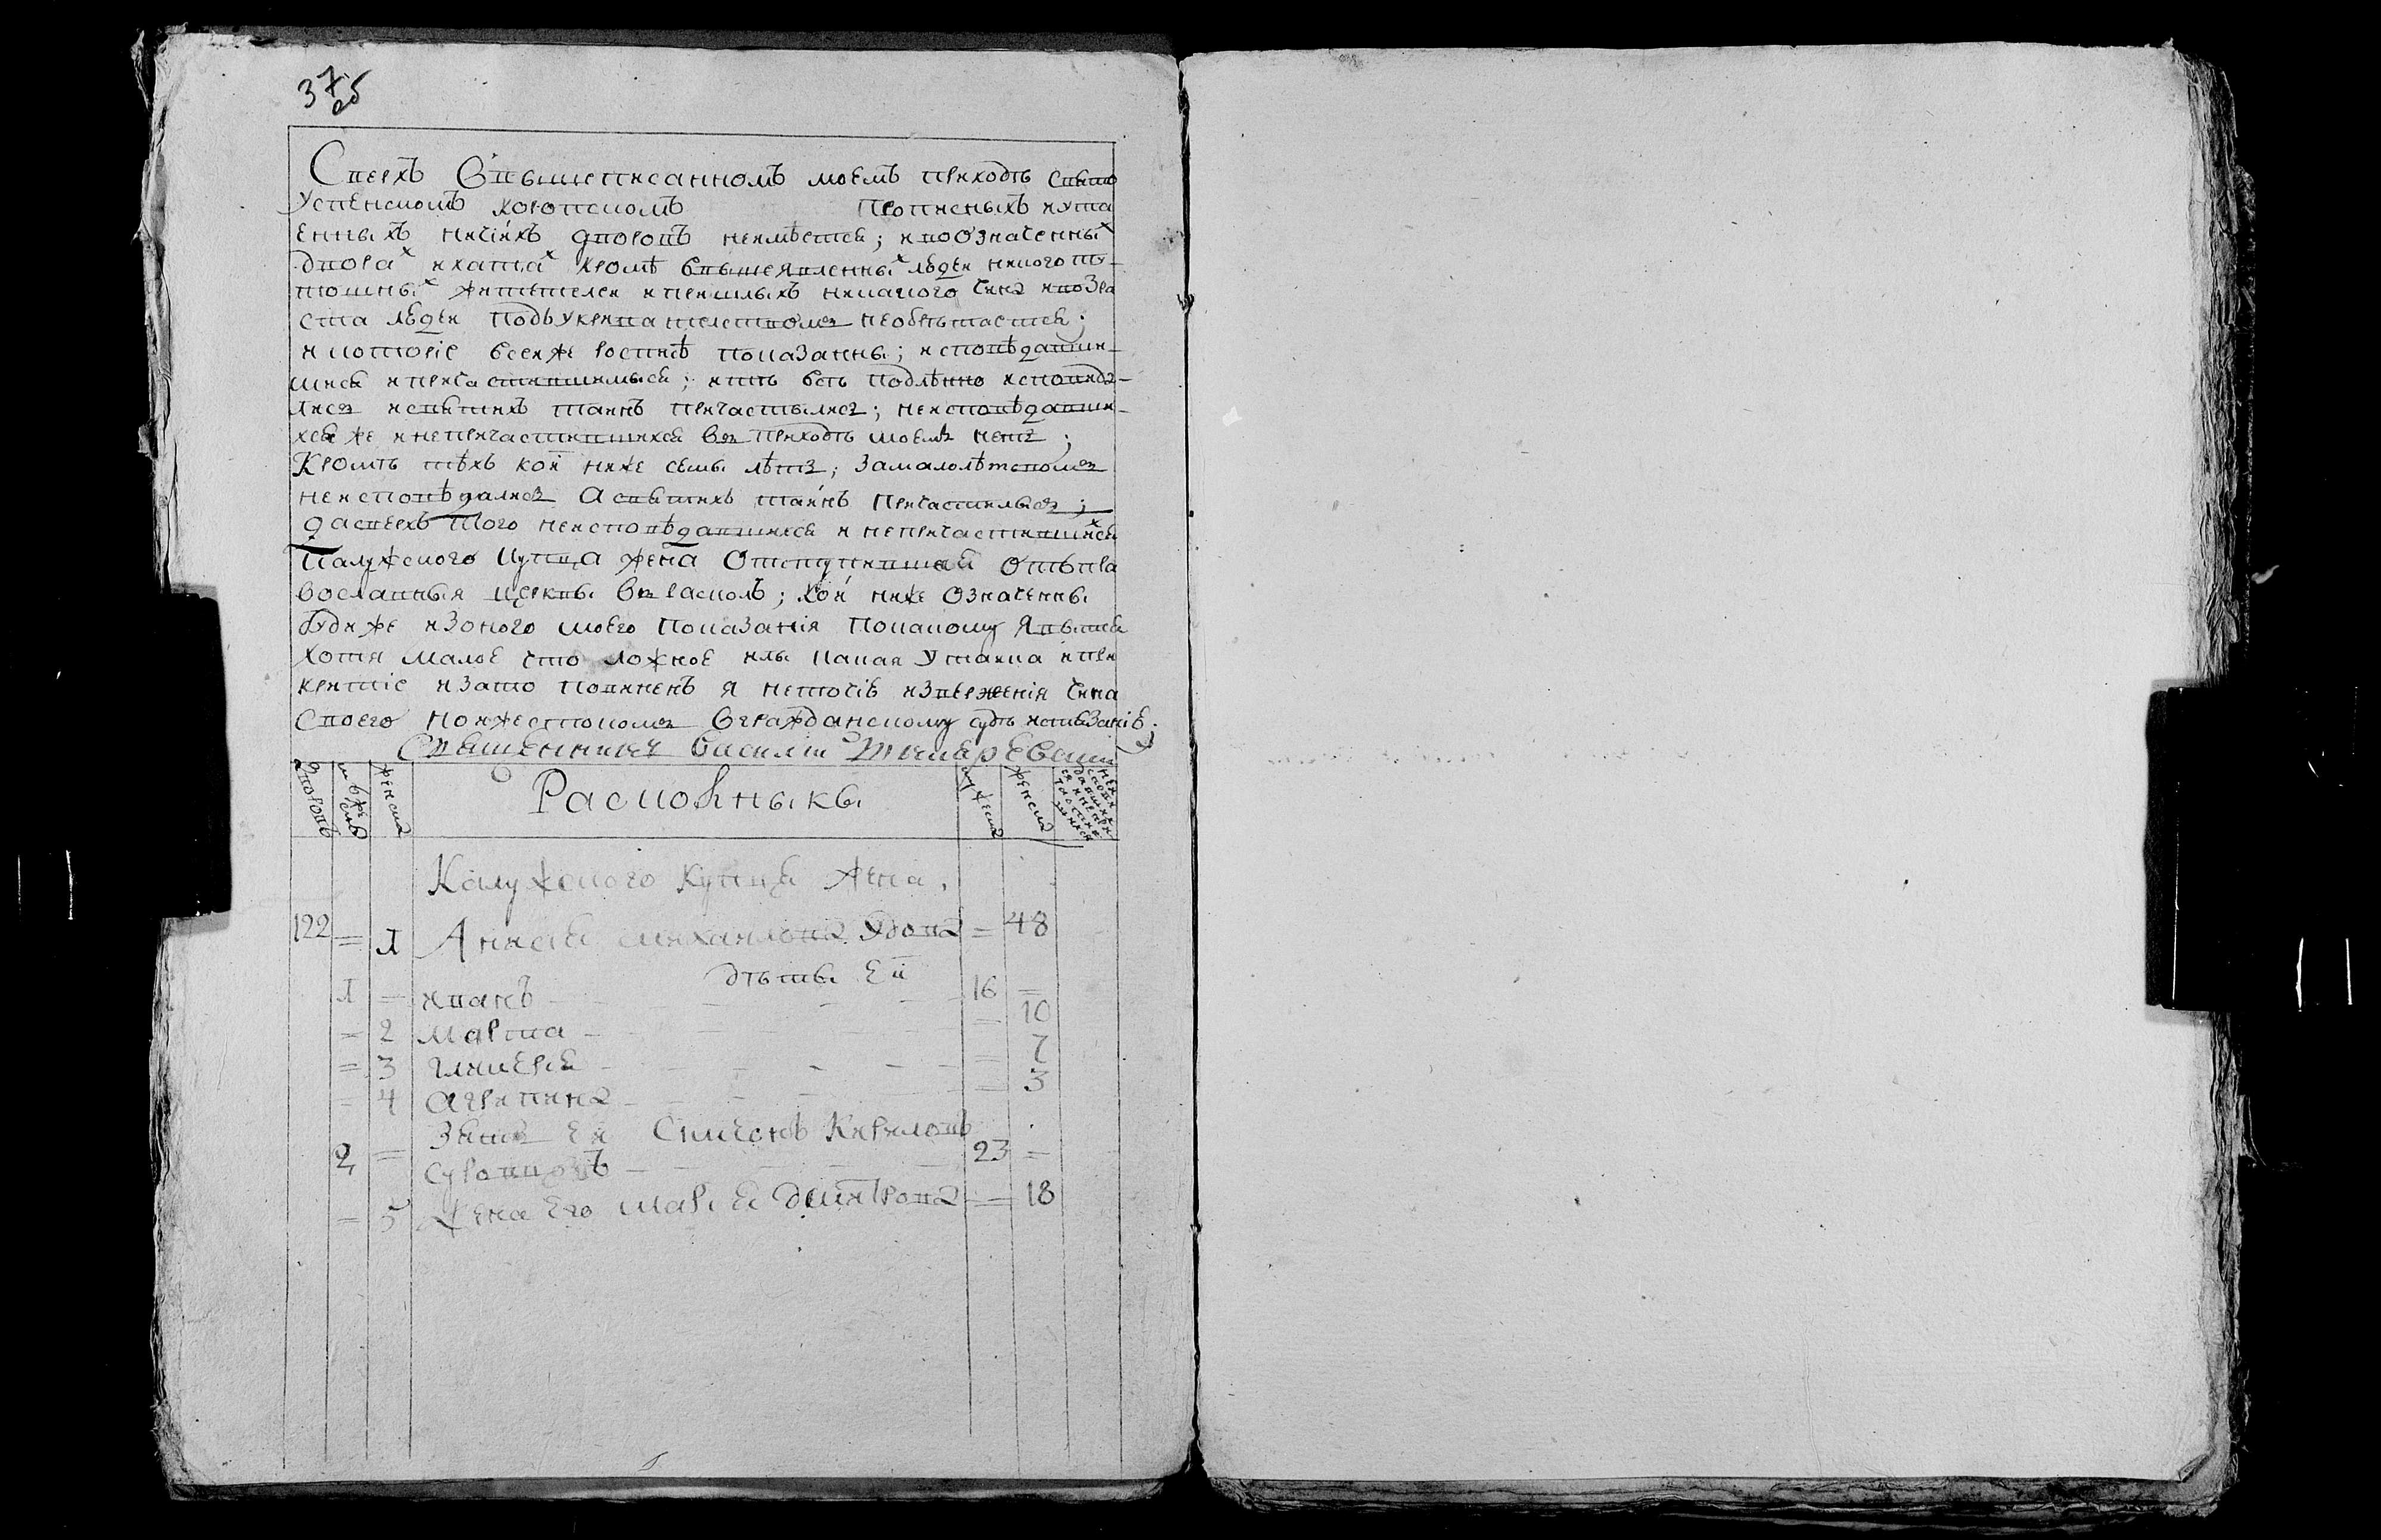 37
об
Сверхъ Ввышеписанномъ моемъ приходѣ Свято
Успенскомъ Коропскомъ Прописныхъ и ута
енныхъ ничіихъ дворовъ неимѣется; и по означенныхъ
двора и хата кромѣ ввышеявленны людей никого ту
тошны жителей и пришлыхъ никакого чина и возра
ста людей подъ укрывателствомъ необрѣтается;
и которіе всей же росписѣ показанны; исповѣдавши-
мися и причастившимися; и тѣ всѣ подлѣнно исповида-
лися и святихъ таинъ причастылися; неисповѣдавши-
хся же и непричастившихся въ приходѣ моемъ нетъ;
Кромѣ тѣхъ кои ниже семы лѣтъ; за малолѣтсвомъ
неисповѣдалися А святихъ таинъ Причастилыся;
да сверхъ того неисповѣдавшихся и непричастившихся
Калужского Купца жена Отступившая отъ пра
вославныя церквы въ расколъ; кои ниже означенны
буди же изоного моего показанія покакому явится
хотя малое что ложное илы какая утайка и при
критіе и за то повиненъ я неточію изверженія чина
своего но и жестокомъ вгражданскому судѣ истязанію;
Священникъ Василій
дворовъ
мужеска
женска
Расколныкы
мужеска
женска
неисповидавшихся и непричастившихся
Калужского Купца жена
122 = 1 Анисія Михайлова Удова = 48
дѣты Ей
1 = Иванъ 16 =
= 2 Марта = 10
= 3 Гликерія = 7
= 4 Агрипина = 3
Зять Ея Симеонъ Кириловъ
2 = Суровцовъ 23 =
= 5 Жена Его Марія Дмитрова = 18